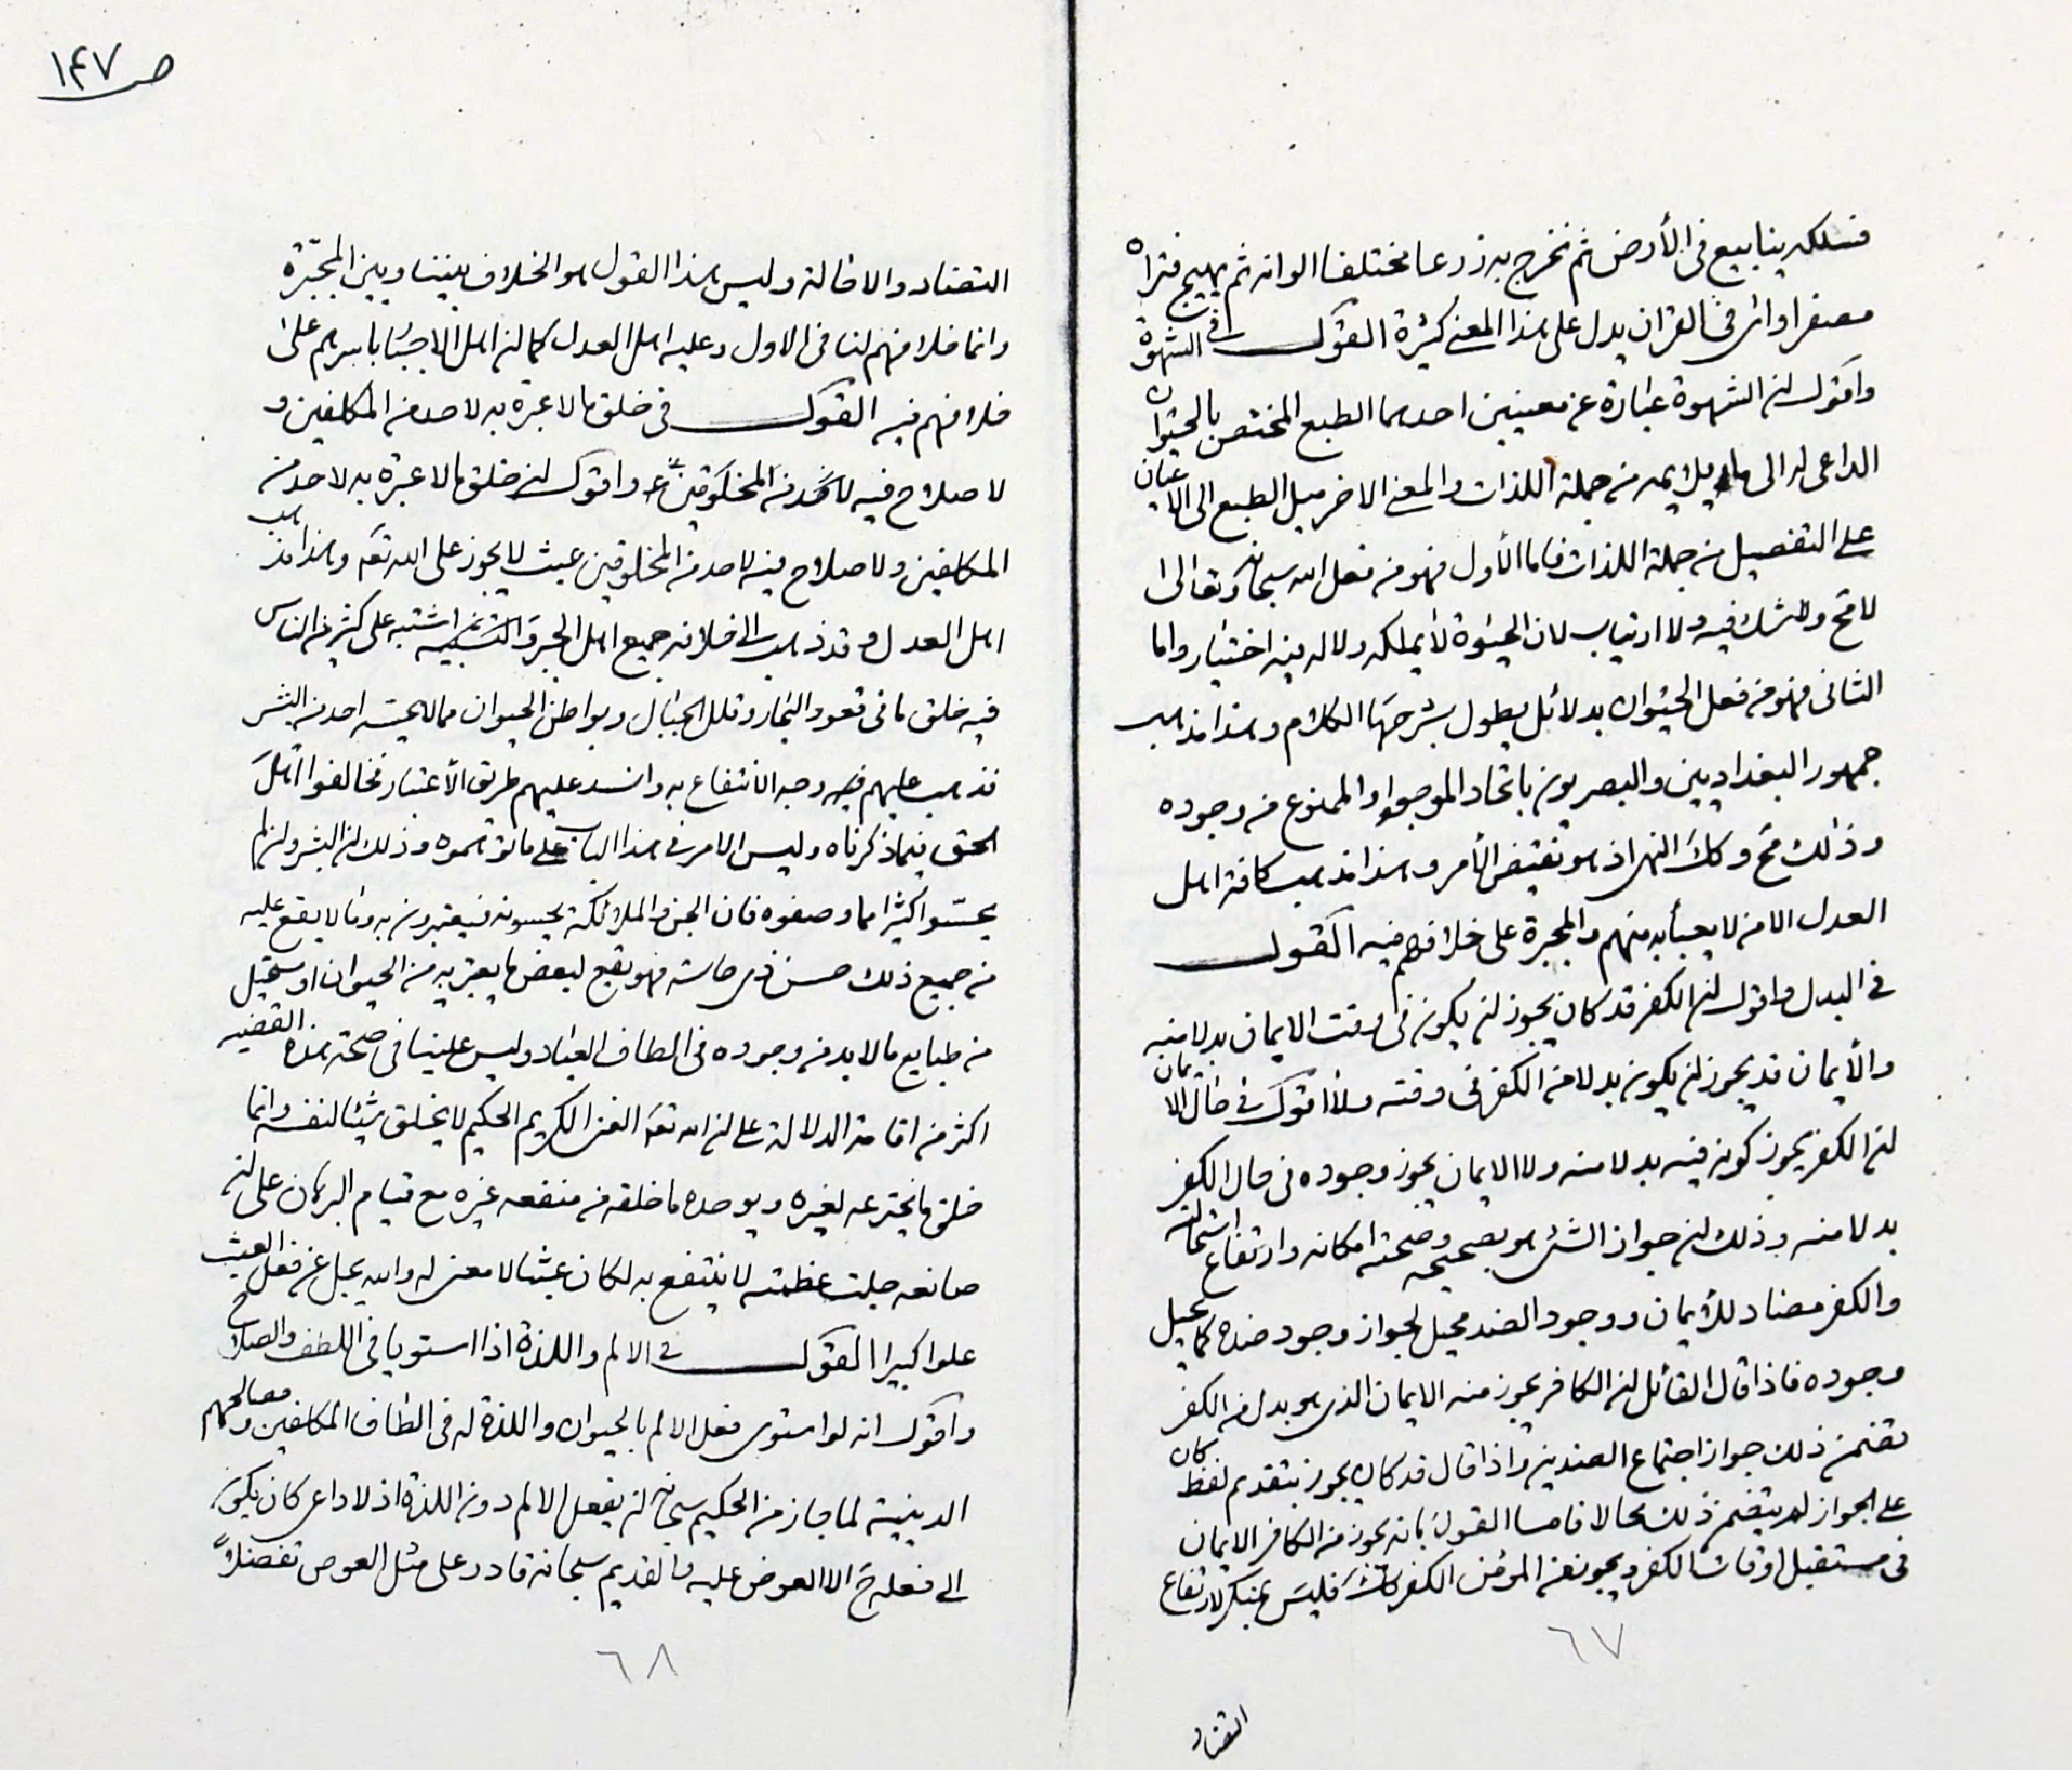 فسلكه ينابيع في الأرض ثم نخرج به زرعا مختلفا الوانه ثم يهيج فتراه
مصفرا وائ في القران يدل على هذا المعنى كثيرة القول في الشهوة
واقول ان الشهوة عبارة عن معنيين احدهما الطبع المختص بالحيوان
الداعى له الى ما يلايمه من جملة اللذات والمعنى الاخر ميل الطبع الى الاعيان
على التفصيل من جملة اللذات فاما الأول فهو من فعل الله سبحانه وتعالى
لا مح ولا شك فيه ولا ارتياب لان الحيوة لا يملكه ولا له فيه اختيار واما
الثانى فهو من فعل الحيوان بدلائل يطول بشرحها الكلام وهذا مذهب
جمهور البغداديين والبصريون باتحاد الموجود والممنوع من وجوده
وذلك مح وكك النهى اذ هو نقيض الأمر وهذا مذهب كافة اهل
العدل الا من لا يعبأ به منهم والمجبرة على خلافهم فيه القول
في البدل واقول ان الكفر قد كان يجوز ان يكون في وقت الايمان بدلا منه
والأيمان قد يجوز ان يكون بدلا من الكفر في وقته ولا اقول في حال الايمان
ان الكفر يجوز كونه فيه بدلا منه ولا الايمان يجوز وجوده في حال الكفر
بدلا منه وذلك ان جواز الشئ هو تصحيحه وصحة امكانه وارتفاع استحالته
والكفر مضاد للأيمان ووجود الضد محيل لجواز وجود ضده كما يحيل
وجوده فاذا قال القائل ان الكافر يجوز منه الايمان الذى هو بدل من الكفر
تضمن ذلك جواز اجتماع الضدين واذا قال قد كان يجوز بتقدم لفظ كان
على الجواز لم يتضمن ذلك محالا فاما القول بانه يجوز من الكافر الايمان
في مستقبل اوقات الكفر ويجوز من المؤمن الكفر كك فليس بمنكر لارتفاع
٦٧
التضاد
ص ١٤٧
التضاد والاحالة وليس هذا القول هو الخلاف بيننا وبين المجبّرة
وانما خلافهم لنا في الاول وعليه اهل العدل كما ان اهل الاجبار باسرهم على
خلافهم فيه القول في خلق ما لا عبرة به لاحد من المكلفين و
لا صلاح فيه لاحد من المخلوقين واقول ان خلق ما لا عبرة به لاحد من
المكلفين ولا صلاح فيه لاحد من المخلوقين عبث لا يجوز على الله تعم وهذا مذهب
اهل العدل وقد ذهب الى خلافه جميع اهل الجبر والتشبيه اشتبه على كثير من الناس
فيه خلق ما في قعود البحار وقلل الجبال وبواطن الحيوان مما لا يحسه احد من البشر
فذهب عليهم وجه الانتفاع به وانسد عليهم طريق الأعتبار فخالفوا اهل
الحق فيما ذكرناه وليس الامر في هذا الباب على ما توهموه وذلك ان البشر وان لم
يحسّوا كثيرا مما وصفوه فان الجن والملائكة يحسونه فيعتبرون به وما لا يقع عليه
من جميع ذلك حسن ذى حاسة فهو يقع لبعض ما يعتبر به من الحيوان او يستحيل
من طبايع ما لا بد من وجوده في الطاف العباد وليس علينا في صحة هذه القضيه
اكثر من اقامة الدلالة على ان الله تعم الغنى الكريم الحكيم لا يخلق شيئا لنفسه وانما
خلق ما يخترعه لغيره ويو ما خلقه من منفعه غيره مع قيام البرهان على ان
صانعه جلت عظمته لا ينتفع به لكان عبثا لا معنى له والله يجل عن فعل العبث
علوا كبيرا القول في الالم واللذة اذا استويا في اللطف والصلاح
واقول انه لو استوى فعل الالم بالحيوان واللذة له في الطاف المكلفين ومصالحهم
الدينية لما جاز من الحكيم سبحانه ان يفعل الالم دون اللذة اذ لا داعى كان يكون
الى فعله ح الا العوض عليه والقديم سبحانه قادر على مثل العوض تفضلاً
٦٨